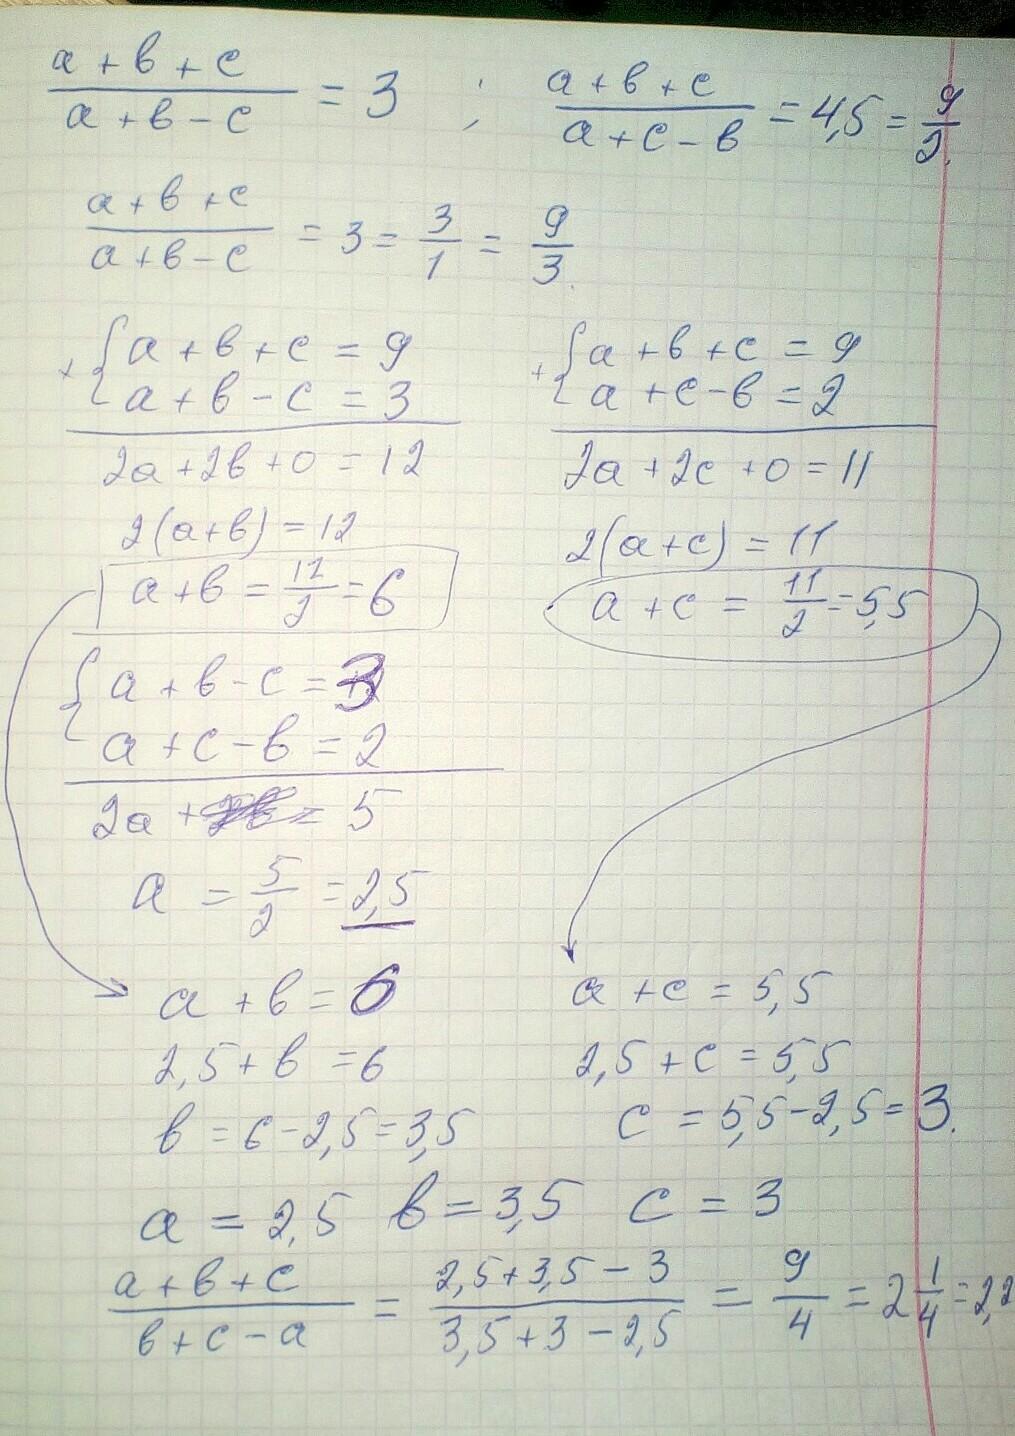 a + b + c / a + b - c = 3 ; a + b + c / a + c - b = 4,5 = 9/2.
a + b + c / a + b - c = 3 = 3/1 = 9/3.
+ { a + b + c = 9
a + b - c = 3
2a + 2b + 0 = 12
2(a + b) = 12
a + b = 12/2 = 6
+ { a + b + c = 9
a + c - b = 2
2a + 2c + 0 = 11
2(a + c) = 11
a + c = 11/2 = 5,5
{ a + b - c = 3
a + c - b = 2
2a + = 5
a = 5/2 = 2,5
a + b = 6
2,5 + b = 6
b = 6 - 2,5 = 3,5
a + c = 5,5
2,5 + c = 5,5
c = 5,5 - 2,5 = 3.
a = 2,5 b = 3,5 c = 3
a + b + c / b + c - a = 2,5 + 3,5 - 3 / 3,5 + 3 - 2,5 = 9/4 = 2 1/4 = 2,2